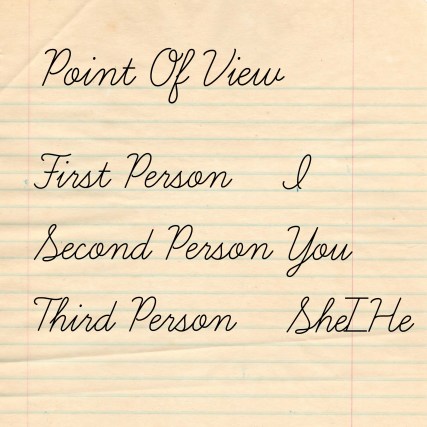 Point Of View
First Person I
Second Person You
Third Person SheIHe